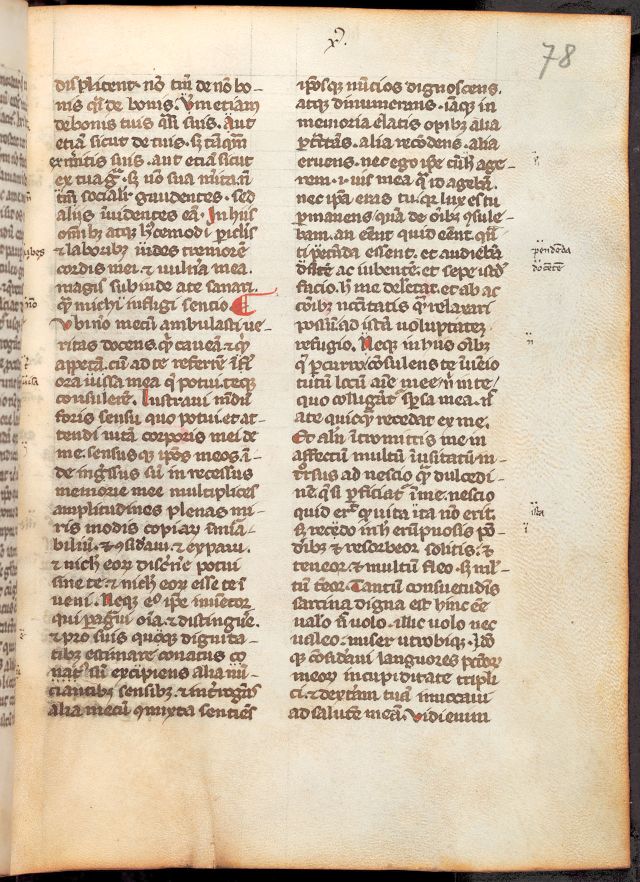 x.
78
displicent. nō tm̄ de nō bo-
nis q̄si de bonis. Vm̄ etiam
de bonis tuis q̄si suis. Aut
etiā sicut de tuis. sꝫ tāq̄m
ex mītis suis. aut etiā sicut
ex tua gr̄a. sꝫ nō sua
tm̄ socialiť gaudentes. sed
aliis īuidentes eā. In hiis
om̄ibꝫ atqꝫ hꝰcemodi piculis
⁊ laboribꝫ uides tremorē
cordis mei. ⁊ uulnīa mea
magis subinde a te sanari.
q̄m michi infligi sentio
Vbi nō mecū ambulasti ve-
ritas docens. qͥd caueā ⁊ qͥd
appetā. cū ad te referrē īfi
ora uissa mea q̄ potui. teqꝫ
consulerē. Lustraui mūdū
foris sensu quo potui. et at-
tendi uitā corporis mei de
me. sensusqꝫ ip̄os meos. ī-
de ingressus sū in recessus
memorie mee multiplices
amplitudines plenas mi-
ris modis copiaꝝ īnūa-
biliū. ⁊ ꝯsidaui. ⁊ expaui.
⁊ nich eoꝝ disc̄ne potui
sine te ⁊ nich eoꝝ esse te ī-
ueni. Neqꝫ eº ip̄e inuētor
qui pagͣui oīa. ⁊ distinguē.
⁊ pro suis quoqꝫ dignita-
tibꝫ estimare conatus
sū excipiens alia nū-
ciantibꝫ sensibꝫ. ⁊ int̄rogās
alia mecū ꝯmixta sentiēs
ip̄osqꝫ nūcios dignoscens.
atqꝫ dinumerans. iāqꝫ in
memoria elatis opibꝫ alia
ꝑt̄ctās. alia recōdens. alia
eruens. nec ego ip̄e cū h̄ age-
rem. i. uis mea qͣ id agebā.
nec ip̄a eras tu. qꝫ lux es tu
ꝑmanens quā de oīibꝫ ꝯsule-
bam. an eēnt quid eēnt. qͣti
ꝑ̄enda essent. et audiebā
dic̄te ac iubentē. et sepe istd̄
facio. h̄ me delectat. et ab ac
cōibꝫ nc̄cītatis q̄m relaxari
possū. ad istā voluptatē
refugio. Neqꝫ in hiis oībꝫ
q̄ ꝑcurro ꝯsulens te īuēio
tutū locū aīe mee. nͥ in te.
quo colligāt̄ sꝑsa mea. nͨ
a te quicqͣ recedat ex me.
Et aln̄ ītromittis me in
affectū multū īusitatū ī-
trͦsus ad nescio qͣ dulcedi-
nē. q̄ si ꝑficiat̄ ī me. nescio
quid erͭ qͩ uita ista nō erit.
Sꝫ recēdo in h̄ erūpnosis pō-
dibꝫ ⁊ resorbeor solitis. ⁊
teneor ⁊ multū fleo. sꝫ ml-
tū teēor. Tantū consuetudīs
sarcina digna est. hinc eē
ualeo si uolo. illic uolo nec
ualeo. miser utrobiqꝫ. Idō
qꝫ cōsid̄aui languores pctōꝝ
meoꝝ in cupiditate tripli
ci. ⁊ dext̄am tuā inuocaui
ad salutē meā. Vidi enim
ꝑpendēda
docētē
ista